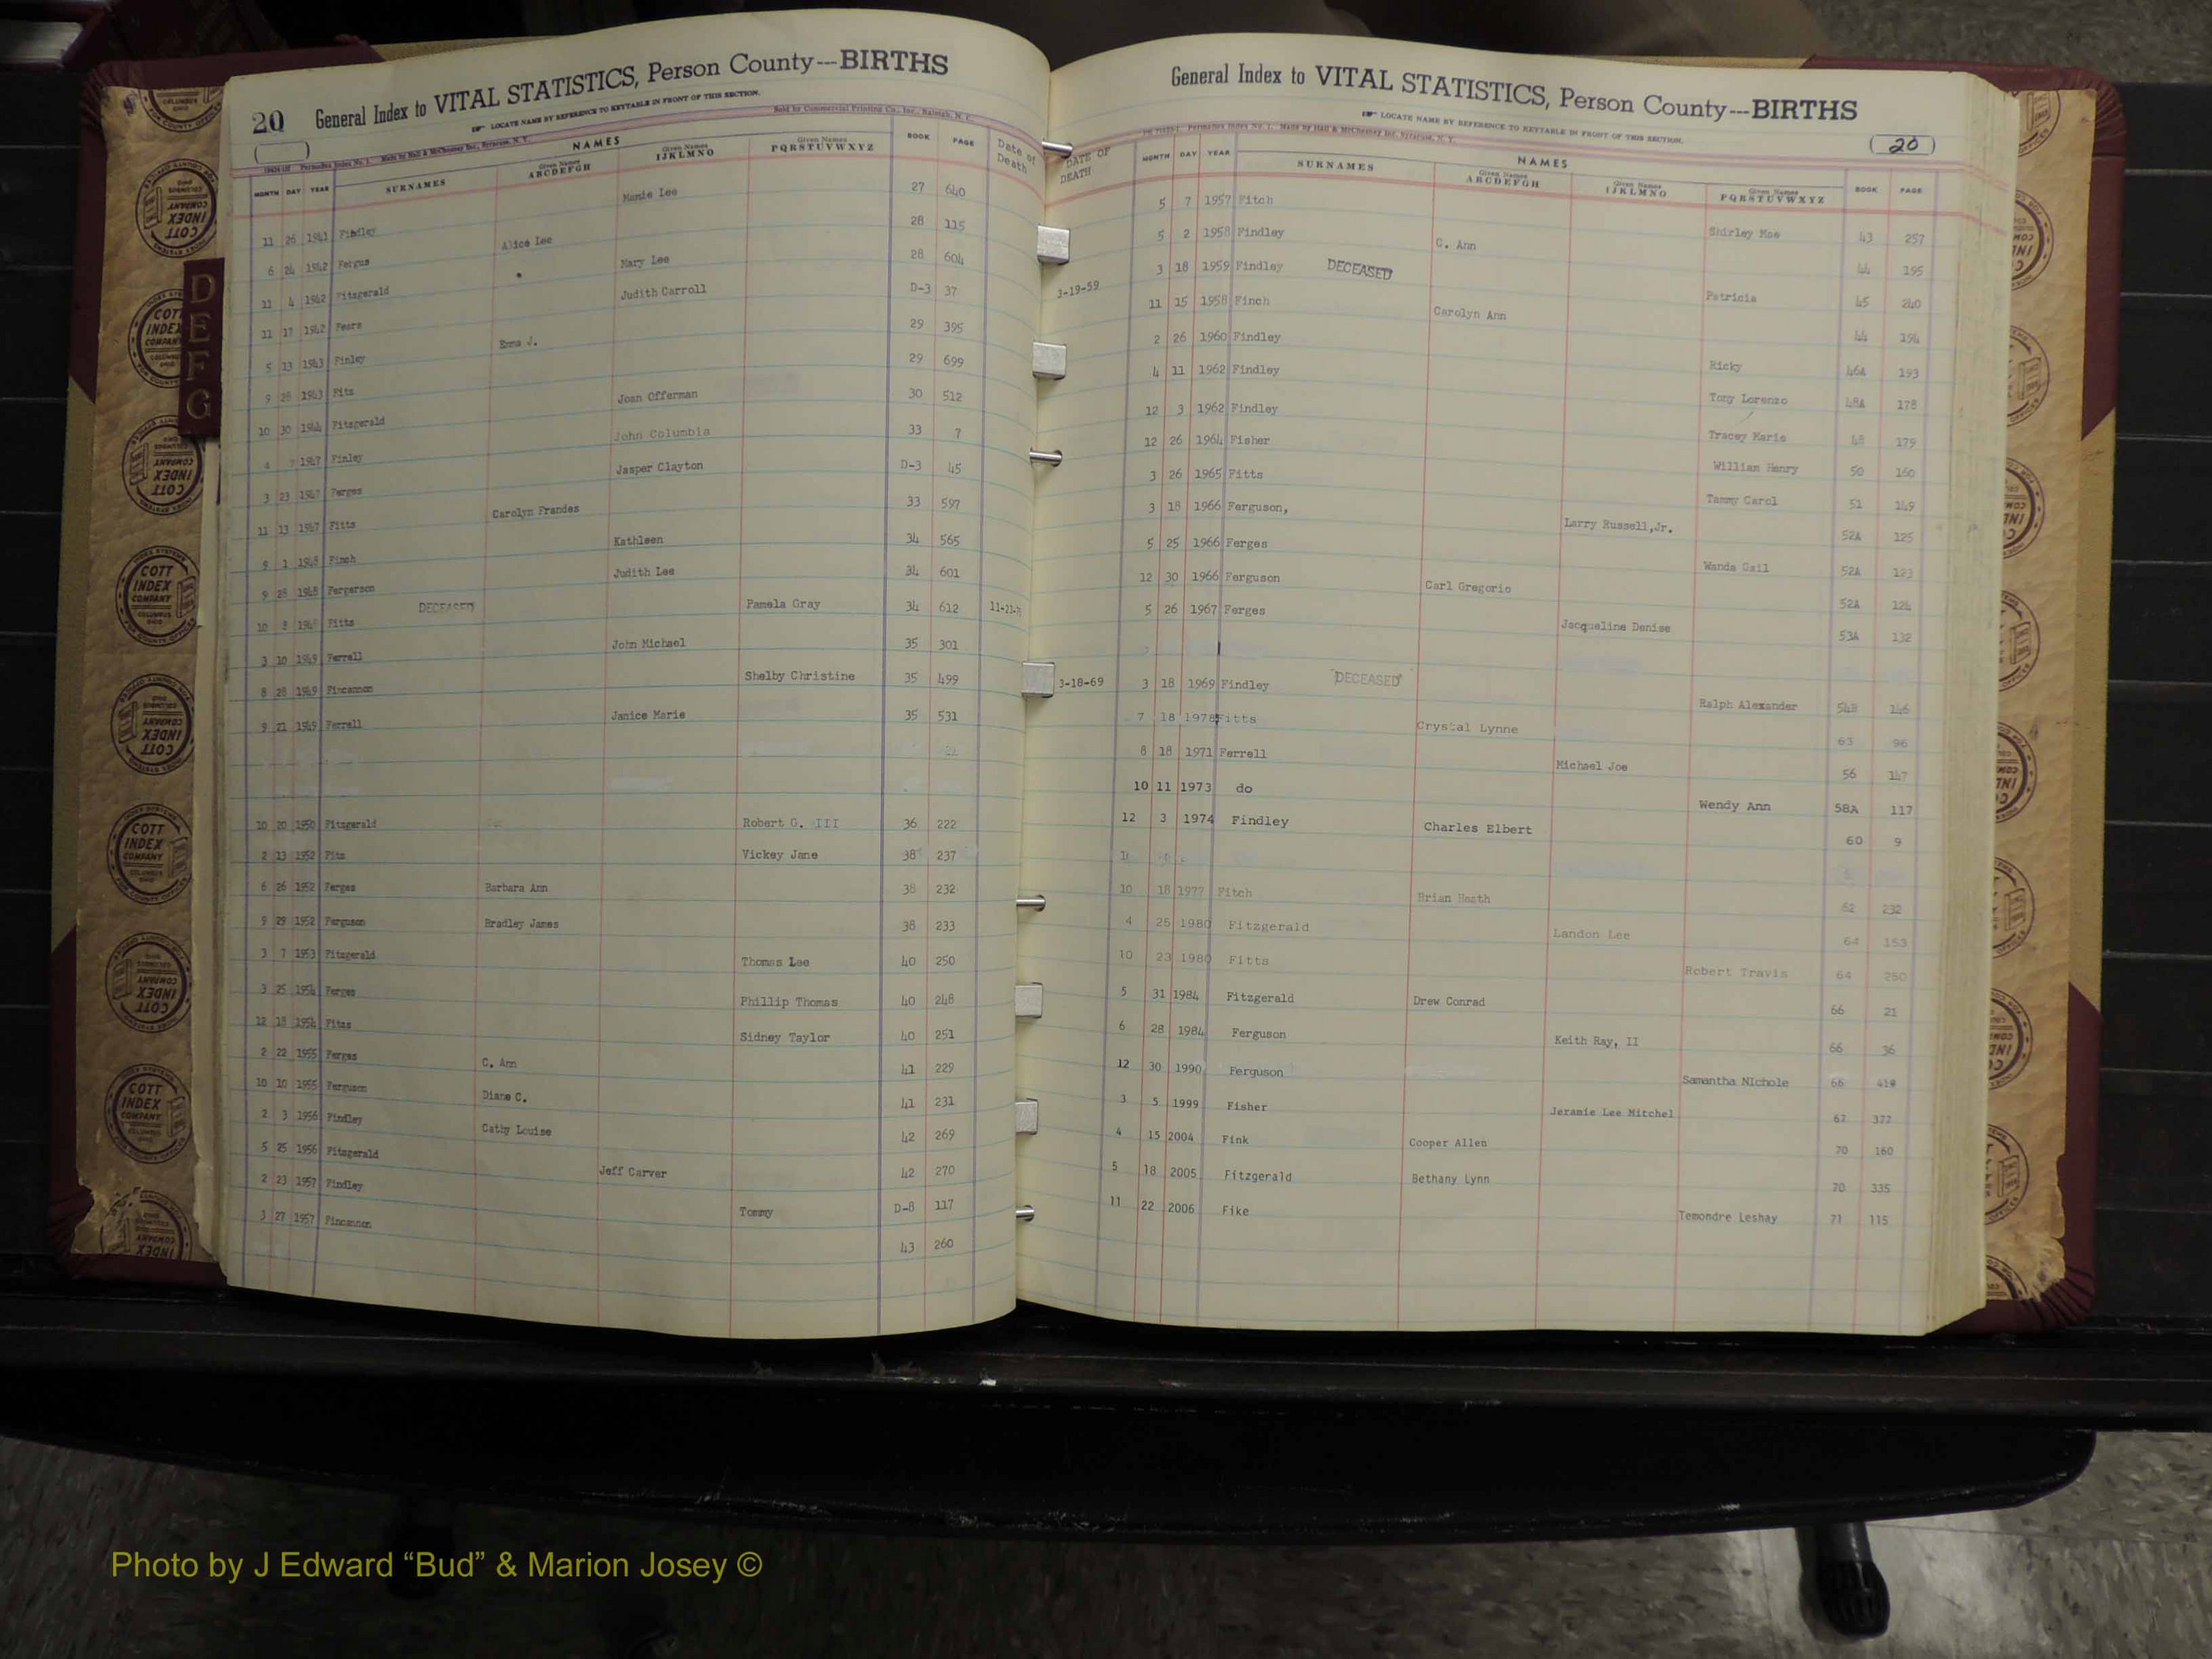 20 General Index to VITAL STATISTICS, Person County---BIRTHS
LOCATE NAME BY REFERENCE TO KEYTABLE IN FRONT OF THIS SECTION.
Sold by Commercial Printing Co., Inc., Raleigh, N. C.
Permadex Index No. 1. Made by Hall & McChesney Inc., Syracuse, N. Y.
NAMES
MONTH DAY YEAR SURNAMES Given Names ABCDEFGH Given Names IJKLMNO Given Names PQRSTUVWXYZ BOOK PAGE Date of Death
11 26 1941 Findley Mamie Lee 27 640
6 24 1942 Fergus Alice Lee 28 115
11 4 1942 Fitzgerald Mary Lee 28 604
11 17 1942 Fears Judith Carroll D-3 37
5 13 1943 Finley Emma J. 29 395
9 28 1943 Fitz 29 699
10 30 1944 Fitzgerald Joan Offerman 30 512
4 7 1947 Finley John Columbia 33 7
3 23 1947 Ferges Jasper Clayton D-3 45
11 13 1947 Fitts Carolyn Frandes 33 597
9 1 1948 Finch Kathleen 34 565
9 28 1948 Fergerson Judith Lee 34 601
10 8 1948 Fitts DECEASED Pamela Gray 34 612
3 10 1949 Ferrell John Michael 35 301
8 28 1949 Fincannon Shelby Christine 35 499
9 21 1949 Ferrell Janice Marie 35 531
10 20 1950 Fitzgerald Robert G. III 36 222
2 13 1952 Fitz Vickey Jane 38 237
6 26 1952 Ferges Barbara Ann 38 232
9 29 1952 Ferguson Bradley James 38 233
3 7 1953 Fitzgerald Thomas Lee 40 250
3 25 1954 Ferges Phillip Thomas 40 248
12 18 1954 Fitts Sidney Taylor 40 251
2 22 1955 Ferges C. Ann 41 229
10 10 1955 Ferguson Diane C. 41 231
2 3 1956 Findley Cathy Louise 42 269
5 25 1956 Fitzgerald Jeff Carver 42 270
2 23 1957 Findley Tommy D-8 117
3 27 1957 Fincannon 43 260
General Index to VITAL STATISTICS, Person County---BIRTHS
LOCATE NAME BY REFERENCE TO KEYTABLE IN FRONT OF THIS SECTION.
20
Permadex Index No. 1. Made by Hall & McChesney Inc., Syracuse, N. Y.
NAMES
DATE OF DEATH MONTH DAY YEAR SURNAMES Given Names ABCDEFGH Given Names IJKLMNO Given Names PQRSTUVWXYZ BOOK PAGE
5 7 1957 Fitch Shirley Mae 43 257
5 2 1958 Findley C. Ann 44 195
3-19-59 3 18 1959 Findley DECEASED Patricia 45 240
11 15 1958 Finch Carolyn Ann 44 194
2 26 1960 Findley Ricky 46A 193
4 11 1962 Findley Tony Lorenzo 48A 178
12 3 1962 Findley Tracey Marie 48 179
12 26 1964 Fisher William Henry 50 160
3 26 1965 Fitts Tammy Carol 51 149
3 18 1966 Ferguson, Larry Russell,Jr. 52A 125
5 25 1966 Ferges Wanda Gail 52A 123
12 30 1966 Ferguson Carl Gregorio 52A 124
5 26 1967 Ferges Jacqueline Denise 53A 132
3-18-69 3 18 1969 Findley DECEASED Ralph Alexander 54B 146
7 18 1978 Fitts Crystal Lynne 63 96
8 18 1971 Ferrell Michael Joe 56 147
10 11 1973 do Wendy Ann 58A 117
12 3 1974 Findley Charles Elbert 60 9
10 18 1977 Fitch Brian Heath 62 232
4 25 1980 Fitzgerald Landon Lee 64 153
10 23 1980 Fitts Robert Travis 64 250
5 31 1984 Fitzgerald Drew Conrad 66 21
6 28 1984 Ferguson Keith Ray, II 66 36
12 30 1990 Ferguson Samantha NIchole 66 419
3 5 1999 Fisher Jeramie Lee Mitchel 67 377
4 15 2004 Fink Cooper Allen 70 160
5 18 2005 Fitzgerald Bethany Lynn 70 335
11 22 2006 Fike Temondre Leshay 71 115
D
E
F
G
COTT
INDEX
COMPANY
Photo by J Edward “Bud” & Marion Josey ©